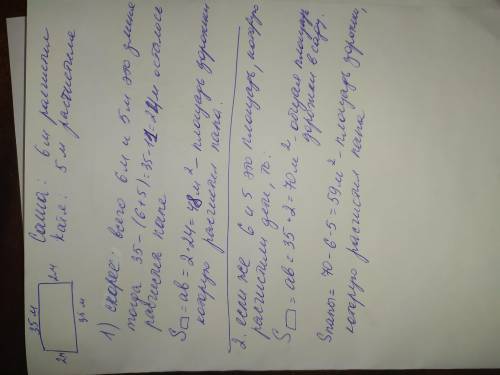 35 м
2м
2м
35 м
Саша: 6 м расчистил
Катя: 5 м расчистила
1) скорее: всего 6 м и 5 м это длина
тогда 35-(6+5)=35-11=24м осталось
расчистил папа
S□=ab=2·24=48м²- площадь дорожки
которую расчистил папа.
2. если же 6 и 5 это площадь, которую
расчистили дети, то:
S□=ab=35·2=70м² общая площадь
дорожки в саду.
Sпапы=70-6-5=59м²-площадь дорожки,
которую расчистил папа